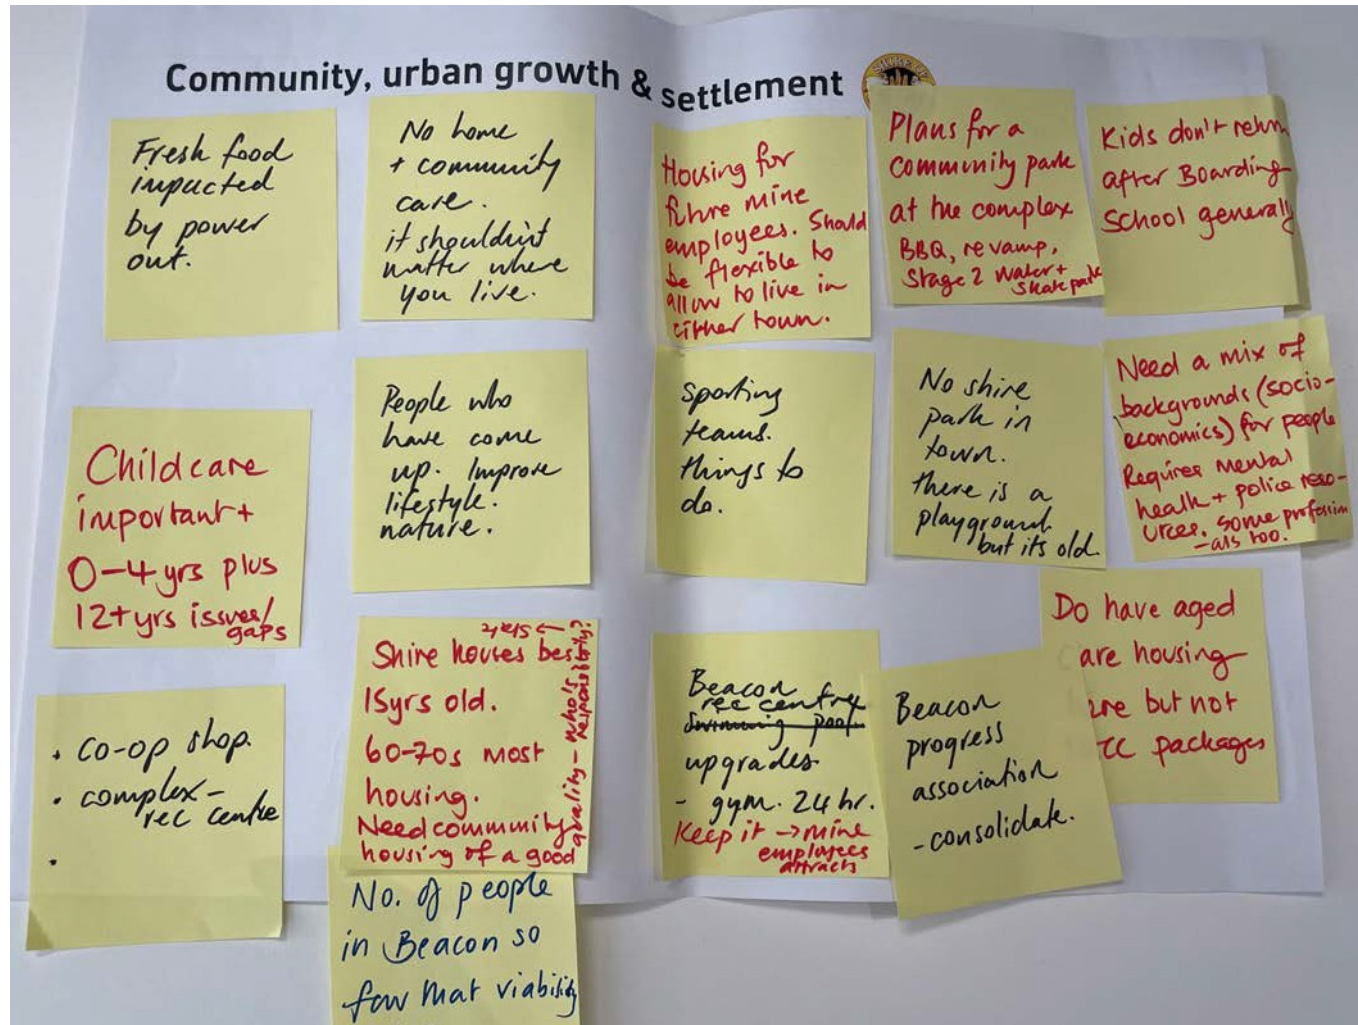 Community, urban growth & settlement
SHIRE OF
Fresh food
impacted
by power
out.
No home
+ community
care.
it shouldn't
matter where
you live.
Housing for
future mine
employees. Should
be flexible to
allow to live in
either town.
Plans for a
community park
at the complex
BBQ, revamp,
Stage 2 water +
skate park
Kids don't return
after Boarding
School generally
Childcare
important +
0-4yrs plus
12+yrs issues/
gaps
People who
have come
up. Improve
lifestyle.
nature.
Sporting
teams.
things to
do.
No shire
park in
town.
there is a
playground
but its old.
Need a mix of
backgrounds (socio-
economics) for people
Requires mental
health + police reso-
urces. some profession
-als too.
• co-op shop.
• complex -
rec centre
•
Shire houses best
15yrs old.
60-70s most
housing.
Need community
housing of a good
quality - who's
responsibility?
Beacon
rec centre
swimming pool
upgrades
- gym. 24 hr.
Keep it → mine
employees
attracts
Beacon
progress
association
- consolidate.
Do have aged
are housing
but not
packages
No. of people
in Beacon so
few that viability